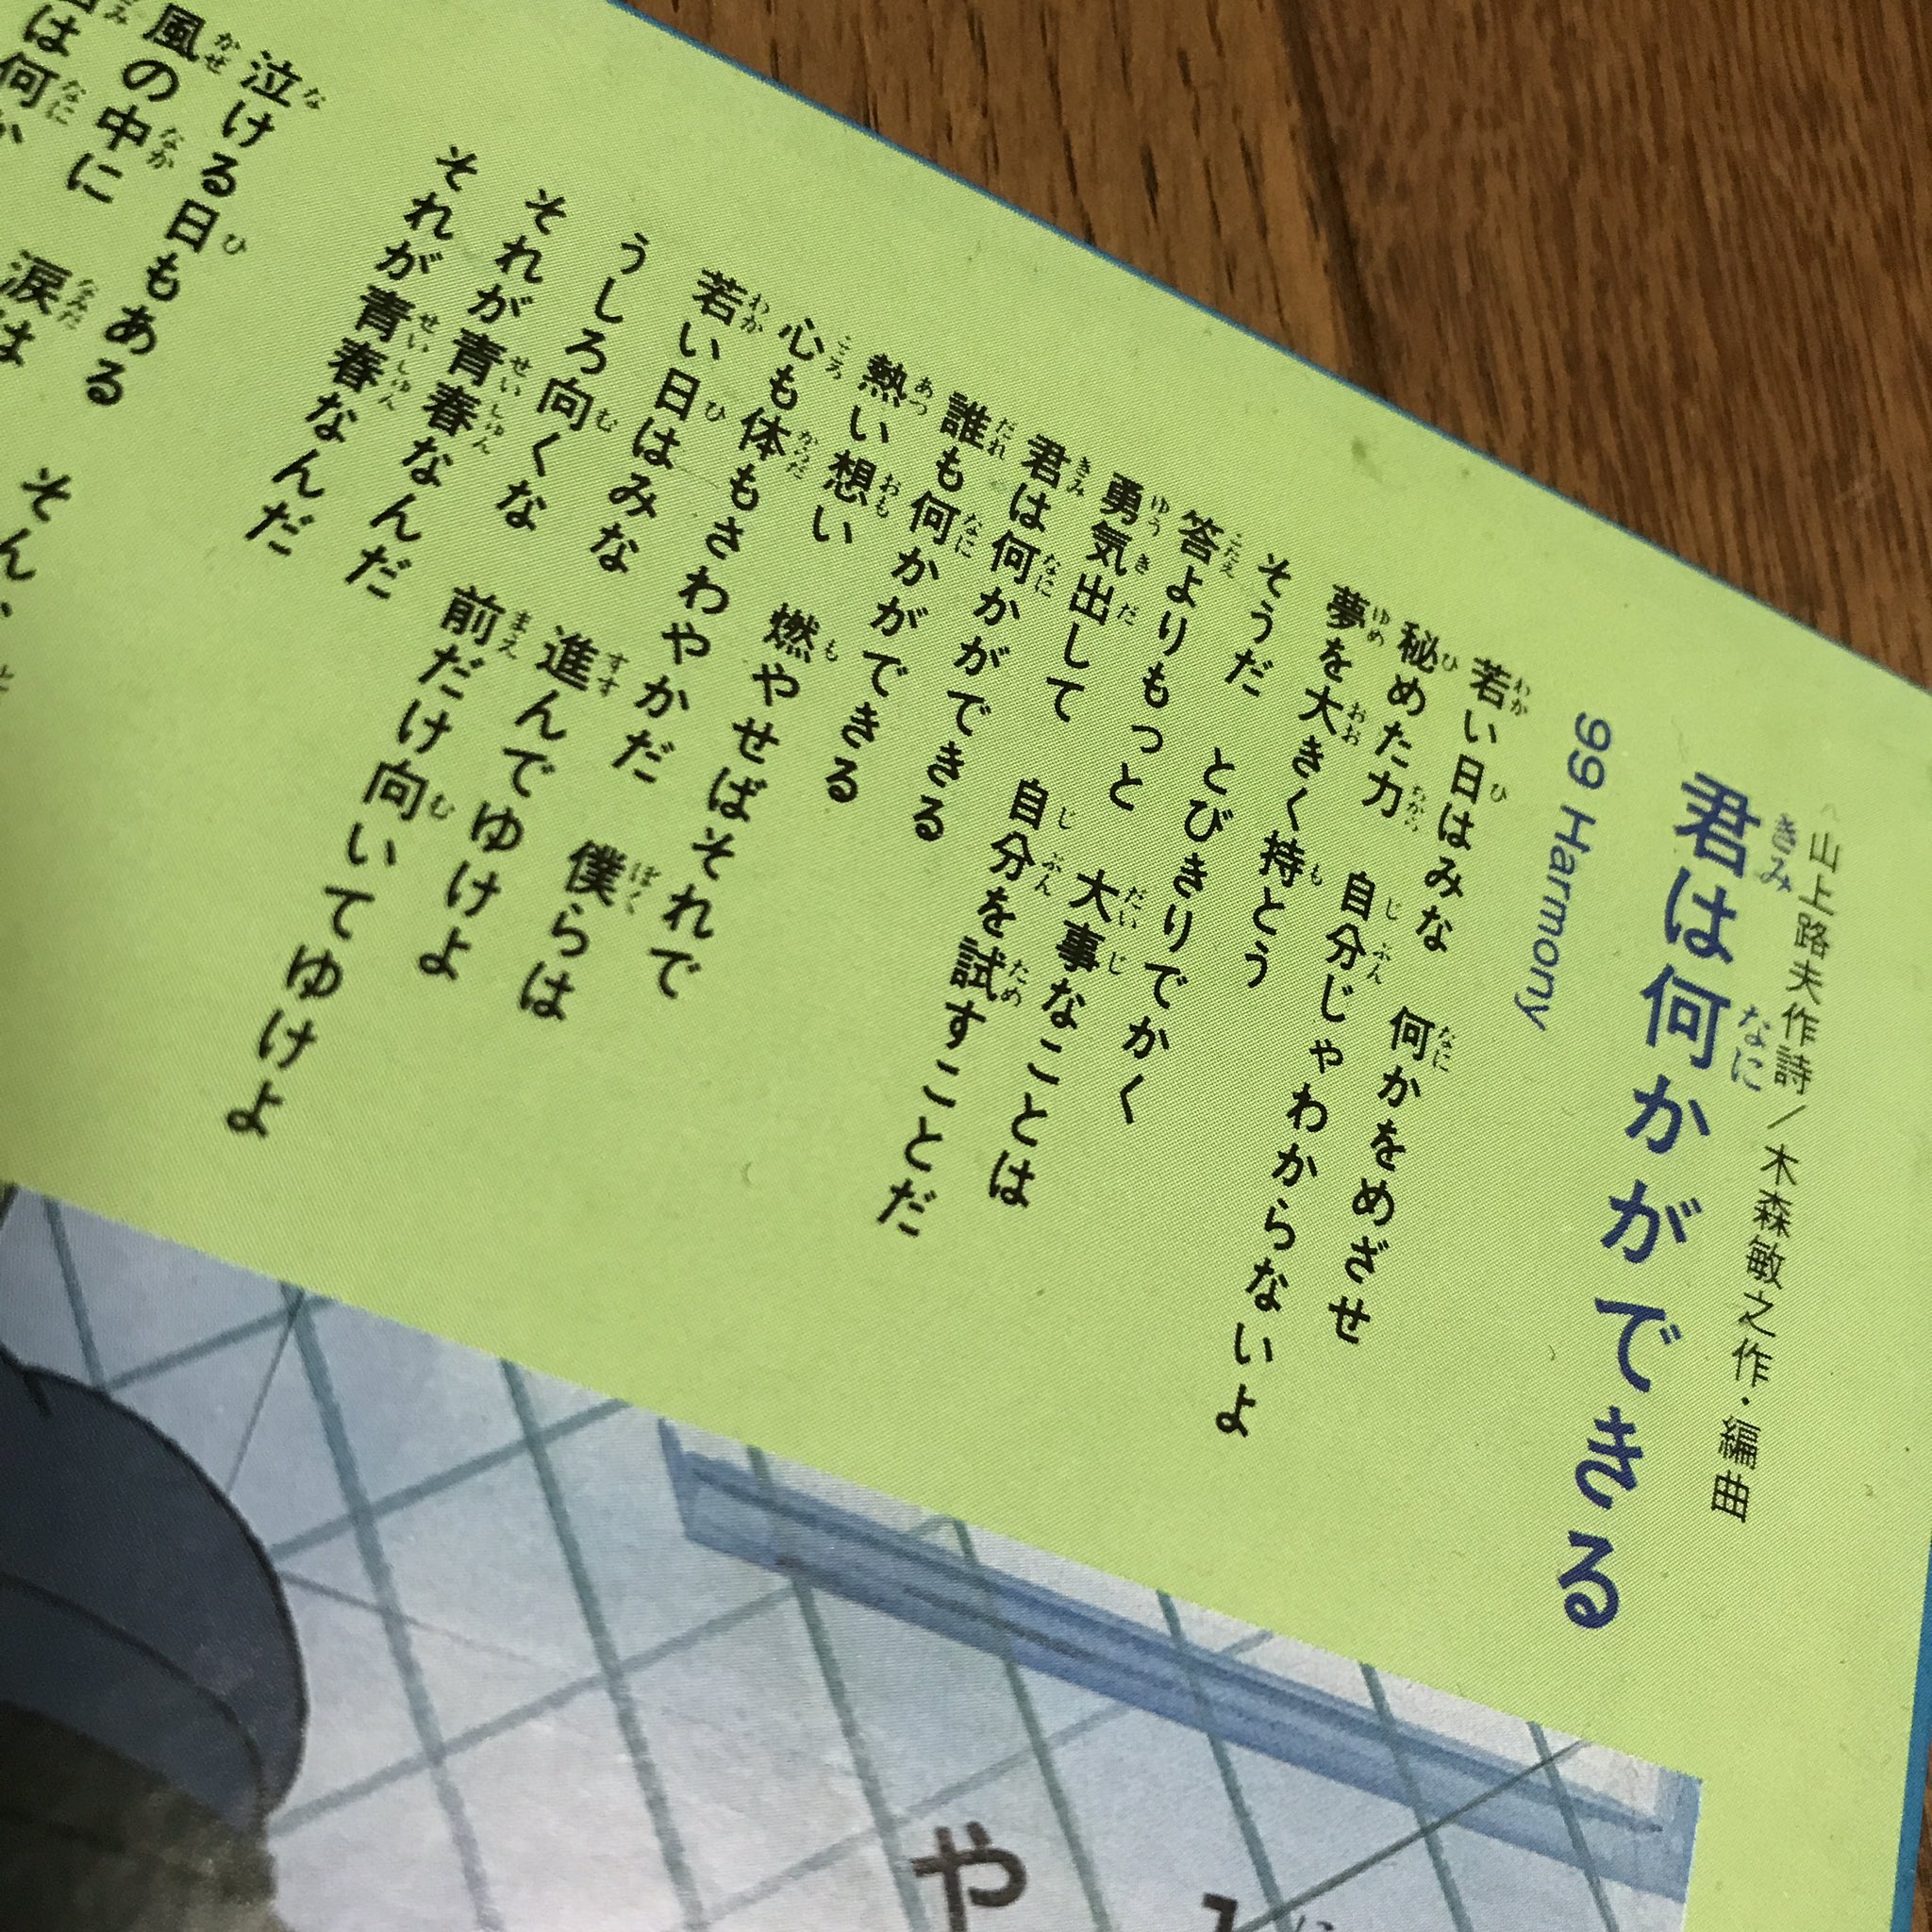 山上路夫作詩/木森敏之作・編曲
君は何かができる
99 Harmony
若い日はみな 何かをめざせ
秘めた力 自分じゃわからないよ
夢を大きく持とう
そうだ とびきりでかく
答よりもっと 大事なことは
勇気出して 自分を試すことだ
君は何かができる
誰も何かができる
熱い想い 燃やせばそれで
心も体もさわやかだ 僕らは
若い日はみな 進んでゆけよ
うしろ向くな 前だけ向いてゆけよ
それが青春なんだ
それが青春なんだ
泣ける日もある そん
風の中に 涙は
は何か
や